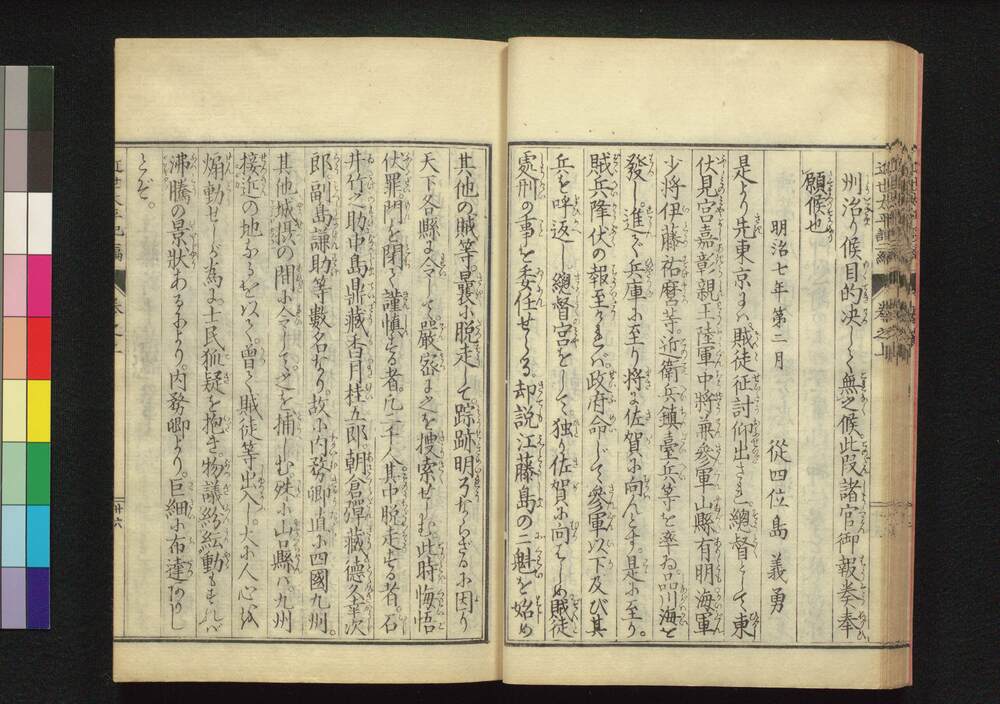 州治り候目的決して無之候此段諸官御報奏奉
願候也
明治七年第二月 從四位島義勇
是より先東京には賊徒征討仰出され總督として東
伏見宮嘉彰親王陸軍中將兼參軍山縣有朋海軍
少將伊藤祐麿等近衛兵鎮臺兵等を率ゐ品川海を
發し。進で兵庫に至り將に佐賀に向んとす。是に至り。
賊兵降伏の報至りければ。政府命じて參軍以下及び其
兵を呼返し總督宮をして獨り佐賀に向はしめ賊徒
處刑の事を委任せらる。却説江藤島の二魁を始め
其他の賊等。曩に脱走して踪跡明ならざるに因り
天下各縣に令して。嚴密に之を搜索せしむ。此時悔悟
伏罪門を閉て謹慎する者。凡二千人其中脱走する者。石
井竹之助中島鼎藏香月桂五郎。朝倉彈藏德久幸次
郎副島謙助等數名なり。故に内務卿直に四國九州。
其他城摂の間に令して。之を捕しむ殊に山口縣ハ。九州
接近の地なるを以て。曾て賊徒等出入し。大に人心を
煽動せしが為に士民狐疑を抱き。物議紛紜動もすれバ
沸騰の景状あるにより。内務卿より。巨細に布達ありし
とぞ。
近世太平記二編 卷之上
卷之上
廿六